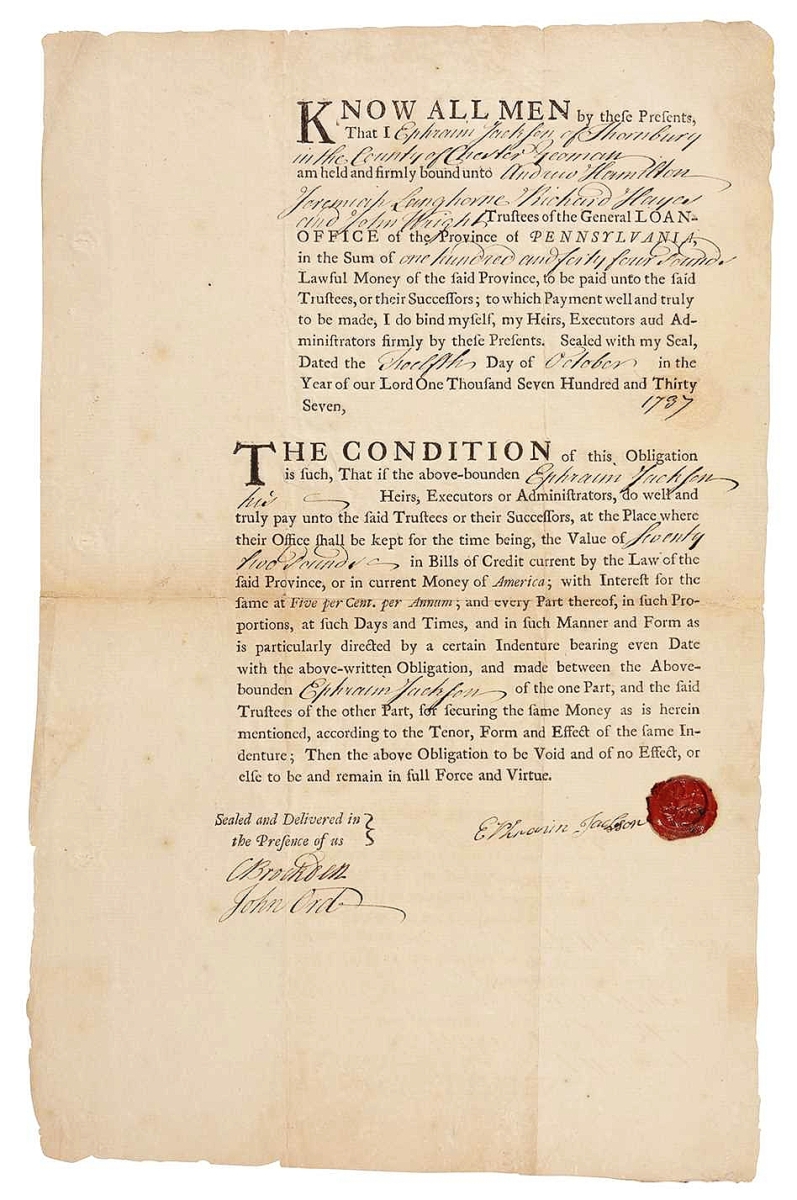 KNOW ALL MEN by theſe Preſents,
That I Ephraim Jackſon of Thornbury
in the County of Cheſter Yeoman
am held and firmly bound unto Andrew Hamilton
Jeremiah Langhorne Richard Hayes
and John Wright Truſtees of the General LOAN-
OFFICE of the Province of PENNSYLVANIA,
in the Sum of one hundred and forty four Pounds
Lawful Money of the ſaid Province, to be paid unto the ſaid
Truſtees, or their Succeſſors; to which Payment well and truly
to be made, I do bind myſelf, my Heirs, Executors aud Ad-
miniſtrators firmly by theſe Preſents. Sealed with my Seal,
Dated the Twelfth Day of October in the
Year of our Lord One Thouſand Seven Hundred and Thirty
Seven, 1737
THE CONDITION of this Obligation
is ſuch, That if the above-bounden Ephraim Jackſon
his Heirs, Executors or Adminiſtrators, do well and
truly pay unto the ſaid Truſtees or their Succeſſors, at the Place where
their Office ſhall be kept for the time being, the Value of Seventy
two Pounds in Bills of Credit current by the Law of the
ſaid Province, or in current Money of America; with Intereſt for the
ſame at Five per Cent. per Annum; and every Part thereof, in ſuch Pro-
portions, at ſuch Days and Times, and in ſuch Manner and Form as
is particularly directed by a certain Indenture bearing even Date
with the above-written Obligation, and made between the Above-
bounden Ephraim Jackſon of the one Part, and the ſaid
Truſtees of the other Part, for ſecuring the ſame Money as is herein
mentioned, according to the Tenor, Form and Effect of the ſame In-
denture; Then the above Obligation to be Void and of no Effect, or
elſe to be and remain in full Force and Virtue.
Sealed and Delivered in
the Preſence of us
Ephraim Jackson
CBrockden
John Ord